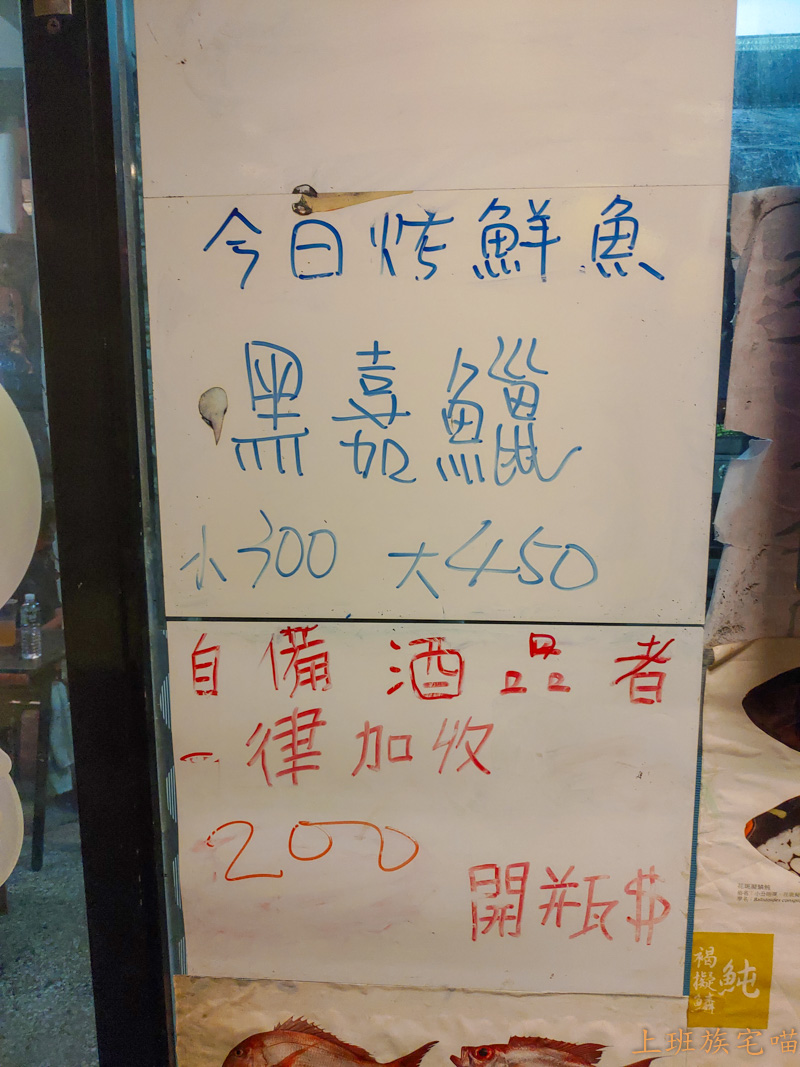 今日烤鮮魚
黑嘉鱲
小300 大450
自備酒品者
一律加收
200
開瓶$
褐擬鱗魨
上班族宅喵